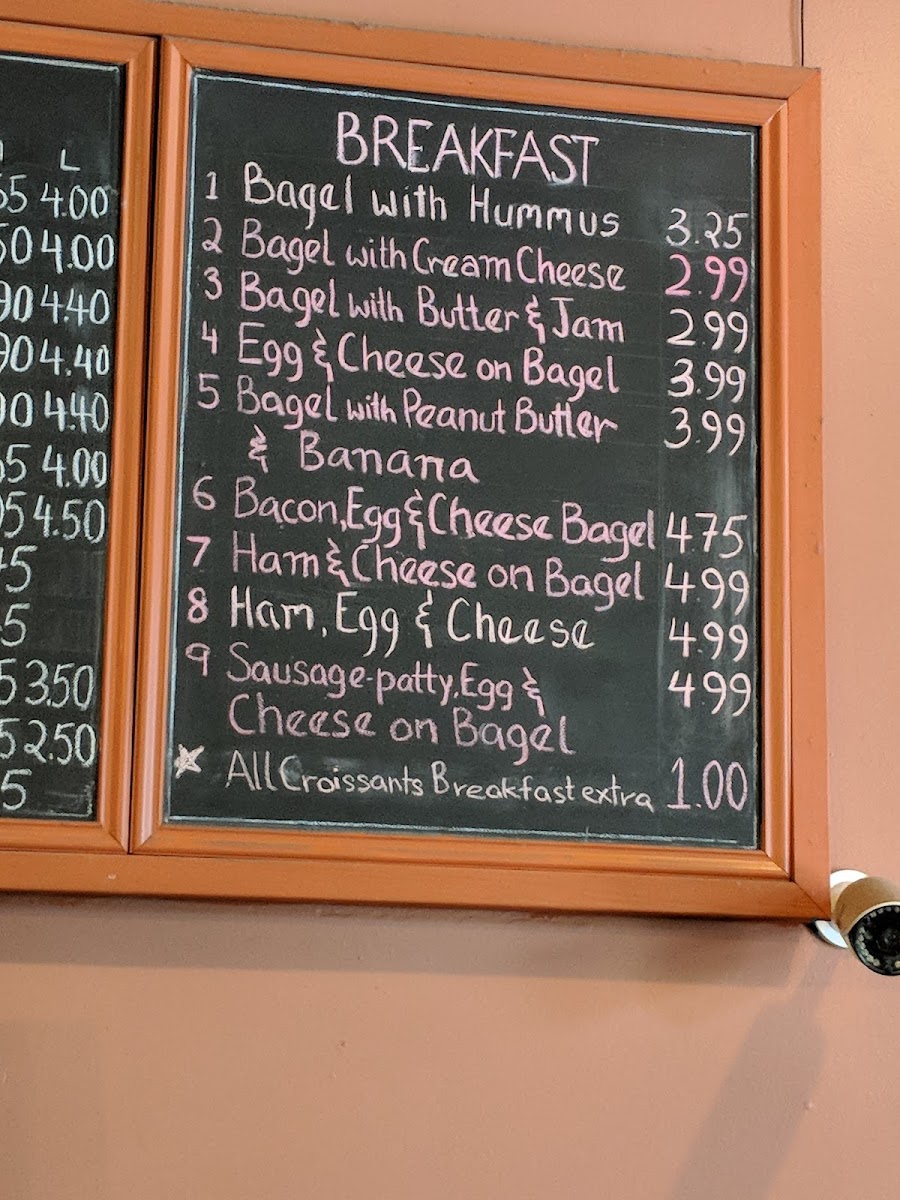 L
4.00
4.00
4.40
4.40
4.40
4.00
4.50
5
5
3.50
2.50
5
BREAKFAST
1 Bagel with Hummus 3.25
2 Bagel with Cream Cheese 2.99
3 Bagel with Butter & Jam 2.99
4 Egg & Cheese on Bagel 3.99
5 Bagel with Peanut Butter 3.99
& Banana
6 Bacon, Egg & Cheese Bagel 4.75
7 Ham & Cheese on Bagel 4.99
8 Ham, Egg & Cheese 4.99
9 Sausage-patty, Egg & 4.99
Cheese on Bagel
All Croissants Breakfast extra 1.00